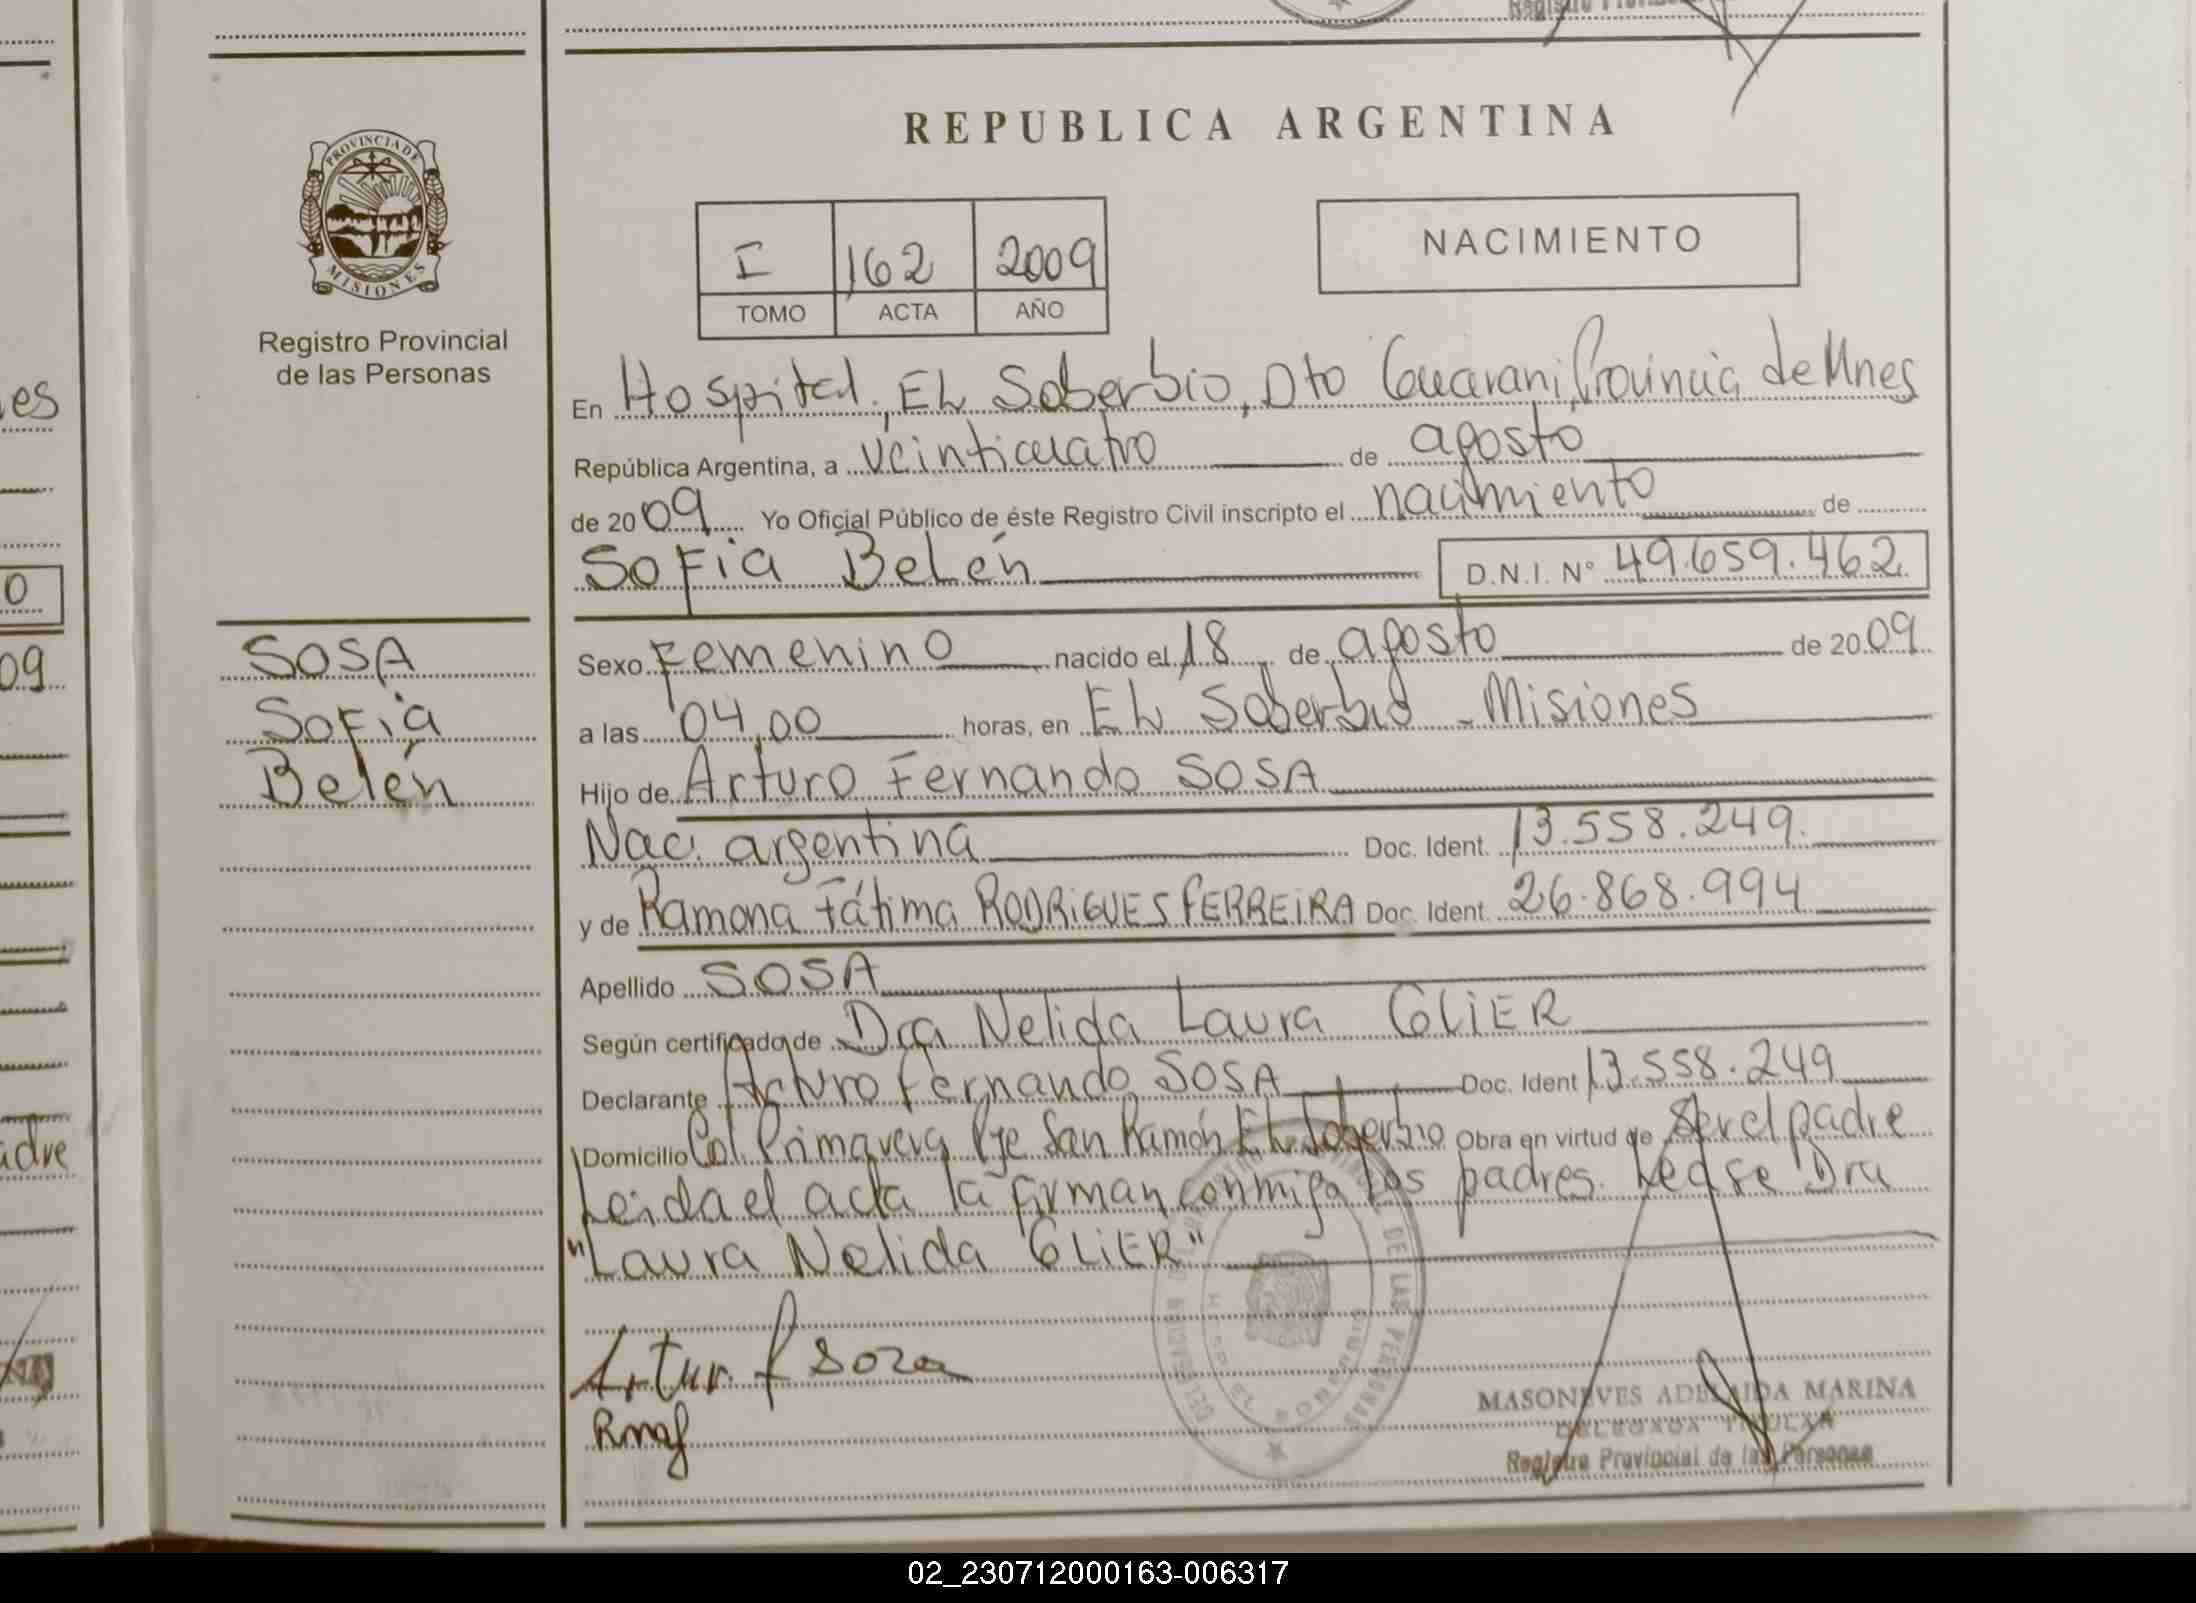 REPUBLICA ARGENTINA
PROVINCIA DE
MISIONES
Registro Provincial
de las Personas
I 162 2009
TOMO ACTA AÑO
NACIMIENTO
En Hospital, EL Soberbio, Dto Guarani, Provincia de Mnes
República Argentina, a veinticuatro de agosto
de 2009 Yo Oficial Público de éste Registro Civil inscripto el nacimiento de
Sofia Belén D.N.I. Nº 49.659.462
SOSA
Sofia
Belén
Sexo Femenino nacido el 18 de agosto de 2009
a las 04,00 horas, en EL Soberbio - Misiones
Hijo de Arturo Fernando SOSA
Nac. argentina Doc. Ident. 13.558.249.
y de Ramona Fátima RODRIGUES FERREIRA Doc. Ident. 26.868.994
Apellido SOSA
Según certificado de Dra Nelida Laura GLIER
Declarante Arturo Fernando SOSA Doc. Ident 13.558.249
Domicilio Col. Primavera Pje San Ramón EL Soberbio Obra en virtud de ser el padre
Leida el acta la firman conmigo los padres. Lease Dra
"Laura Nelida GLIER"
Artur f sosa
MASONEVES ADELAIDA MARINA
DELEGADA TITULAR
Registro Provincial de las Personas
es
0
09
adre
02_230712000163-006317